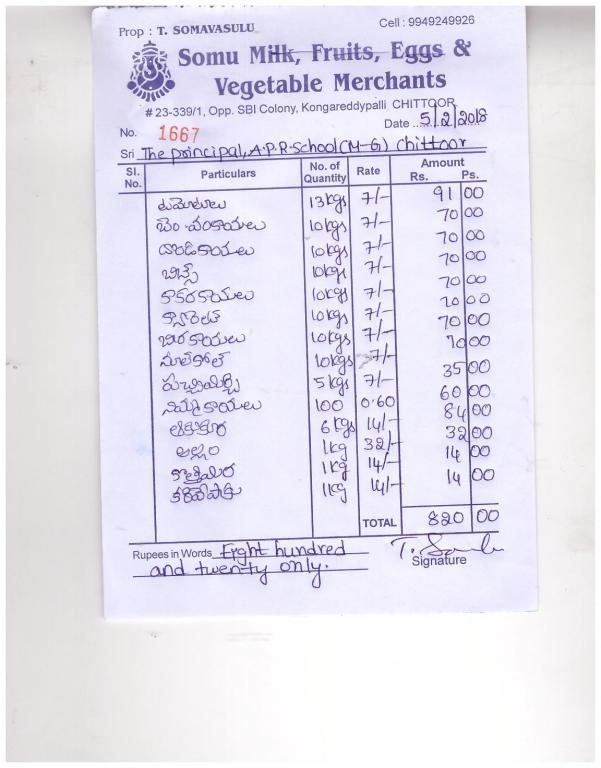 Prop : T. SOMAVASULU Cell : 9949249926
Somu Milk, Fruits, Eggs &
Vegetable Merchants
# 23-339/1, Opp. SBI Colony, Kongareddypalli, CHITTOOR
No. 1667 Date ..5/2/2018
Sri The principal, A.P.R-School(M-G) Chittoor
Sl. No. Particulars No. of Quantity Rate Amount Rs. Ps.
టమోటాలు 13kgs 7/- 91 00
వంకాయలు 10kgs 7/- 70 00
దొండకాయలు 10kgs 7/- 70 00
బీన్స్ 10kgs 7/- 70 00
కాకరకాయలు 10kgs 7/- 70 00
క్యారెట్ 10kgs 7/- 70 00
బీరకాయలు 10kgs 7/- 70 00
నూల్‌కోల్ 10kgs 7/- 70 00
పచ్చిమిర్చి 5kgs 7/- 35 00
నిమ్మకాయలు 100 0.60 60 00
6kgs 14/- 84 00
అల్లం 1kg 32/- 32 00
కొత్తిమీర 1kg 14/- 14 00
కరివేపాకు 1kg 14/- 14 00
TOTAL 820 00
Rupees in Words Eight hundred
and twenty only.
Signature